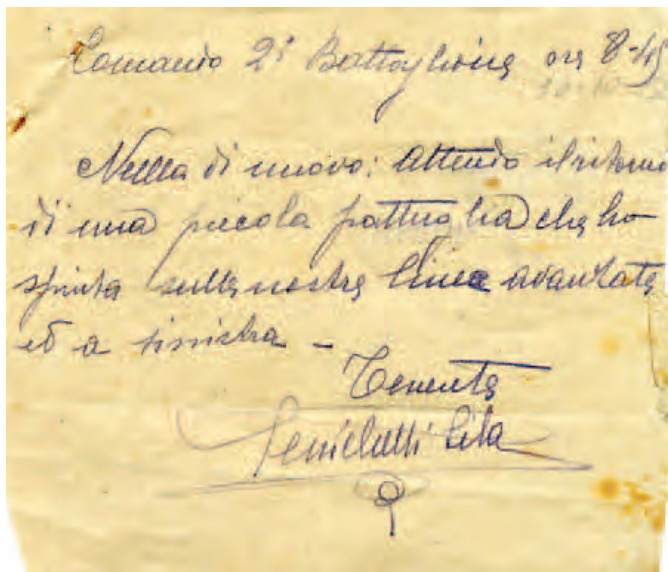 Comando 2° Battaglione ore 8-45
Nulla di nuovo: attendo il ritorno
di una piccola pattuglia che ho
spinta sulla nostra linea avanzata
ed a sinistra -
Tenente